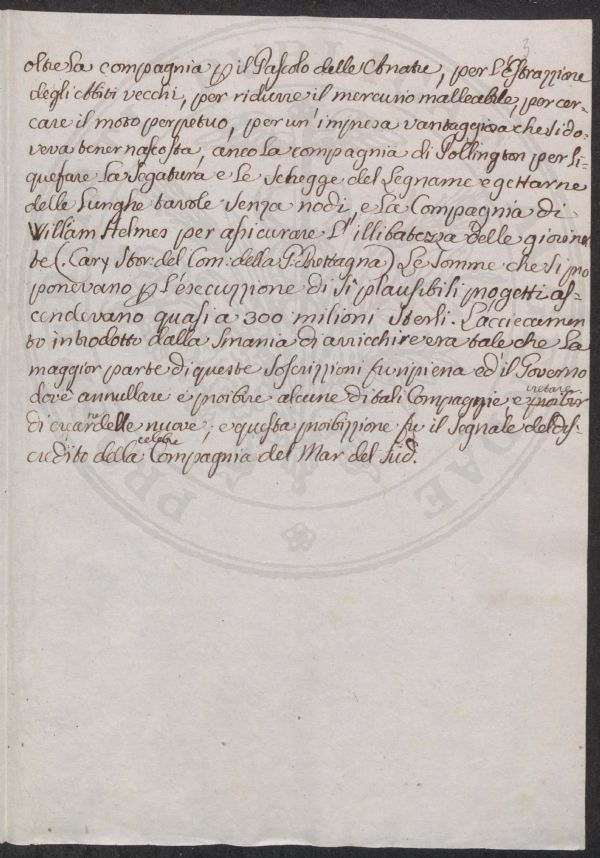 3
oltre la compagnia p il Pascolo delle Contrade, per l'Estrazzione
degli abiti vecchi, per ridurre il mercurio malleabile, per cer-
care il moto perpetuo, per un'impresa vantaggiosa che si do-
veva tener nascosta, anco la compagnia di Pollington per li-
quefare la segatura e le schegge del legname e gettarne
delle lunghe tavole senza nodi, e la Compagnia di
William Helmes per assicurare l'illibatezza delle giovinet-
te (. Cary Stor: del Com: della G: Brettagna) Le somme che si pro
ponevano p l'esecuzzione di sì plausibili progetti as-
cendevano quasi a 300 milioni sterli. L'acciecamen
to introdotto dalla smania di arricchire era tale che la
maggior parte di queste soscrizzioni fu ripiena ed il Governo
dovè annullare e proibire alcune di tali Compagnie e proibir vietare
di crearne delle nuove; e questa proibizzione fu il segnale del dis-
credito della celebre Compagnia del Mar del Sud.